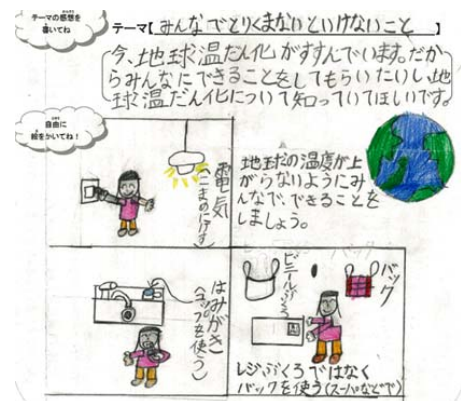 テーマの感想を
書いてね!
テーマ【みんなでとりくまないといけないこと】
今、地球温だん化がすすんでいます。だか
らみんなにできることをしてもらいたいし地
球温だん化について知っていてほしいです。
自由に
絵をかいてね!
電気
(こまめにけす)
地球の温度が上
がらないようにみ
んなで、できることを
しましょう。
はみがき
(コップを使う)
ビニールぶくろ
バック
レジぶくろではなく
バックを使う(スーパーなどで)